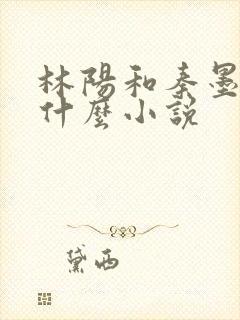 林陽和秦墨
什麼小說
黛西